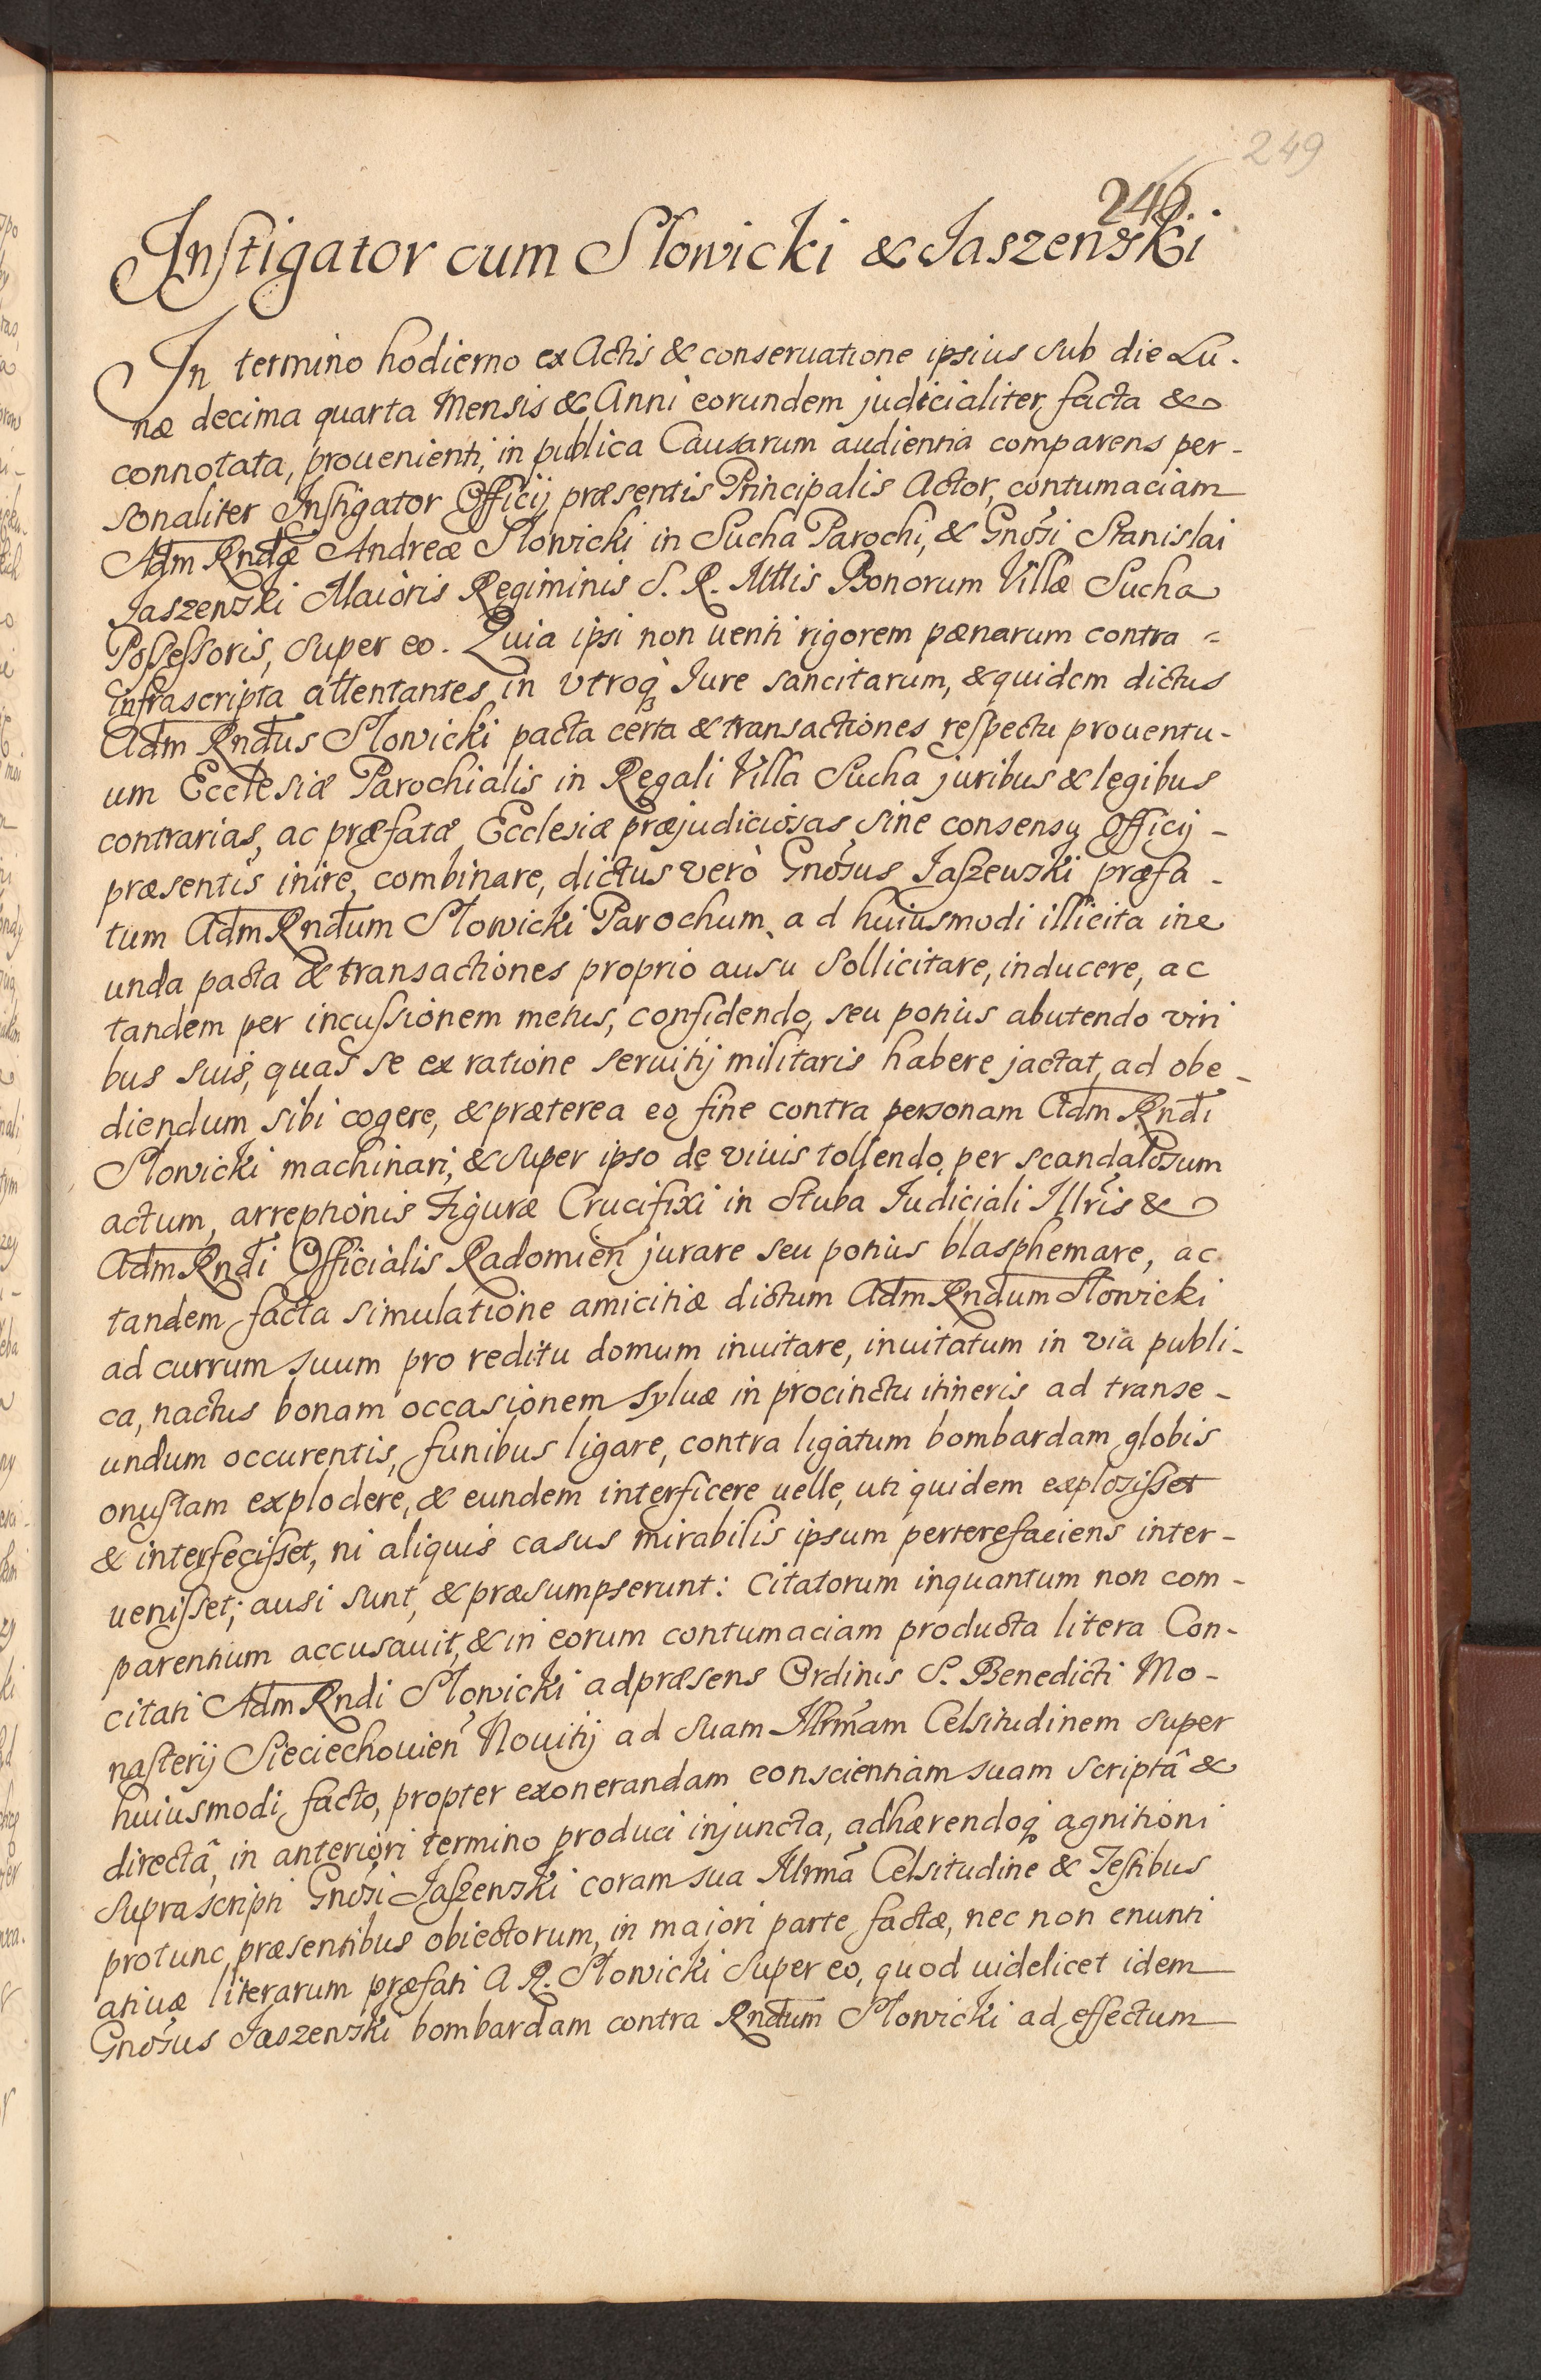 249
246
Instigator cum Słowicki & Jaszewski
In termino hodierno ex Actis & conseruatione ipsius sub die Lu-
næ decima quarta Mensis & Anni eorundem judicialiter facta &
connotata, prouenienti, in publica Causarum audientia comparens per-
sonaliter Instigator Officij præsentis Principalis Actor, contumaciam
Adm Rndi Andreæ Słowicki in Sucha Parochi, & Gnosi Stanislai
Jaszewski Maioris Regiminis S. R. Mttis Bonorum Villæ Sucha
Possessoris, super eo. Quia ipsi non ueriti rigorem pænarum contra =
infrascripta attentantes in vtroq Iure sancitarum, & quidem dictus
Adm Rndus Słowicki pacta certa & transactiones respectu prouentu-
um Ecclesiæ Parochialis in Regali Villa Sucha juribus & legibus
contrarias, ac præfatæ Ecclesiæ præjudiciosas sine consensu Officij -
præsentis inire, combinare, dictus verò Gnosus Jaszewski præfa -
tum Adm Rndum Słowicki Parochum, ad huiusmodi illicita ine
unda pacta & transactiones proprio ausu sollicitare, inducere, ac
tandem per incussionem metus, confidendo, seu potius abutendo viri
bus suis, quas se ex ratione seruitij militaris habere jactat, ad obe -
diendum sibi cogere, & præterea eo fine contra personam Adm Rndi
Słowicki machinari, & super ipso de viuis tollendo, per scandalosum
actum, arreptionis Figuræ Crucifixi in Stuba Iudiciali Illris &
Adm Rndi Officialis Radomien jurare seu potius blasphemare, ac
tandem facta simulatione amicitiæ dictum Adm Rndum Słowicki
ad currum suum pro reditu domum inuitare, inuitatum in via publi-
ca, nactus bonam occasionem syluæ in procinctu itineris ad transe -
undum occurentis, funibus ligare, contra ligatum bombardam globis
onustam explodere, & eundem interficere uelle, uti quidem explosisset
& interfecisset, ni aliquis casus mirabilis ipsum perterefaciens inter-
uenisset; ausi sunt, & præsumpserunt: Citatorum inquantum non com -
parentium accusauit, & in eorum contumaciam producta litera Con-
citati Adm Rndi Słowicki ad præsens Ordinis S. Benedicti Mo-
nasterij Sieciechouien Nouitij ad suam Illrmam Celsitudinem super
huiusmodi facto, propter exonerandam conscientiam suam scriptâ &
directâ, in anteriori termino produci injuncta, adhærendoq agnitioni
suprascripti Gnosi Jaszewski coram sua Illrma Celsitudine & Testibus
protunc præsentibus obiectorum, in majori parte factæ, nec non enunti
atiuæ literarum præfati A R. Słowicki super eo, quod uidelicet idem
Gnosus Jaszewski bombardam contra Rndum Słowicki ad effectum